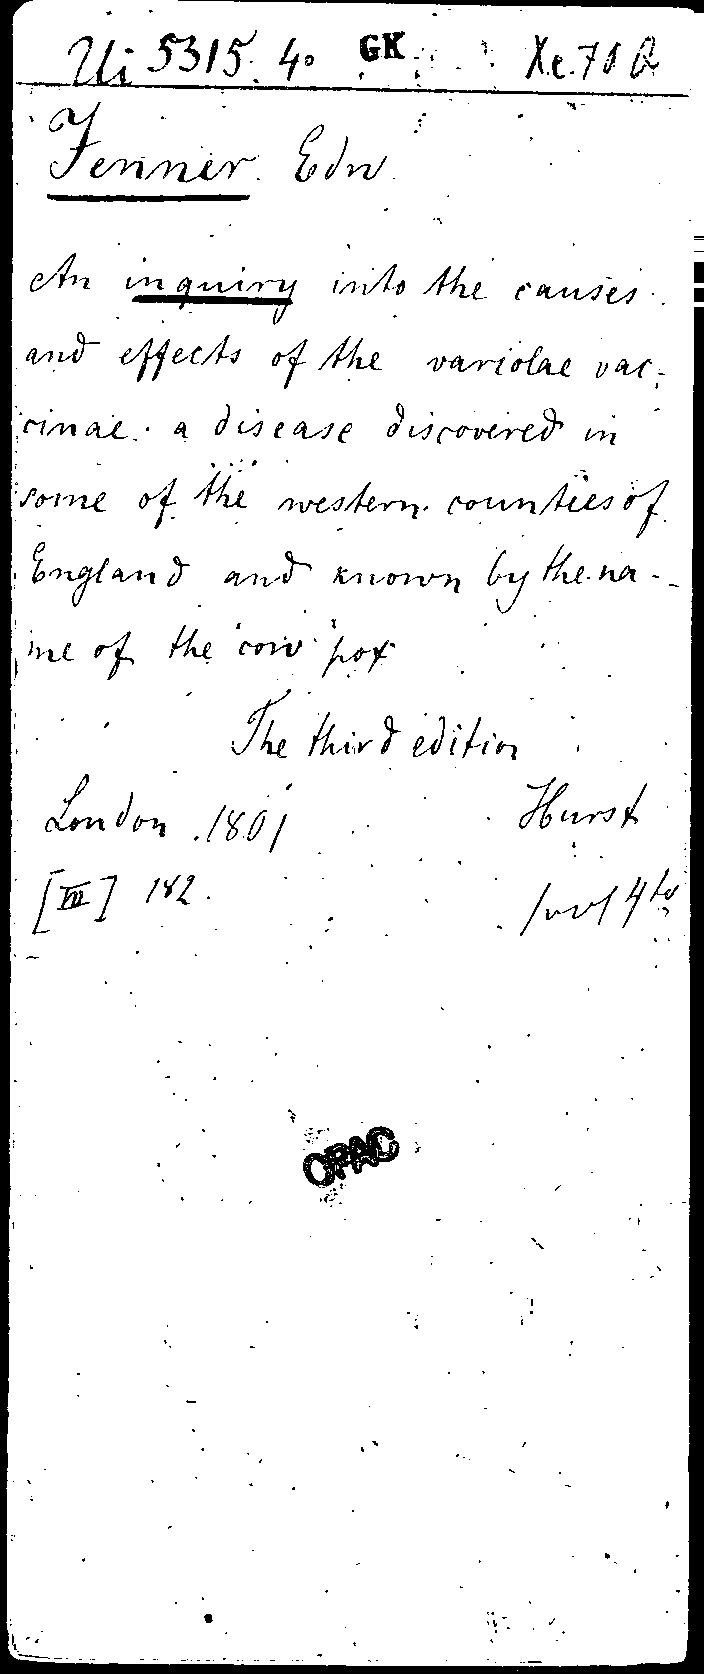 Ui 5315. 4° GK Xe. 70 Q
Jenner. Edw
An inquiry into the causes
and effects of the variolae vac-
cinae. a disease discovered in
some of the western counties of
England and known by the na-
me of the cow pox
The third edition
London 1801 Hurst
[VII] 182. 1 vol 4to
OPAC